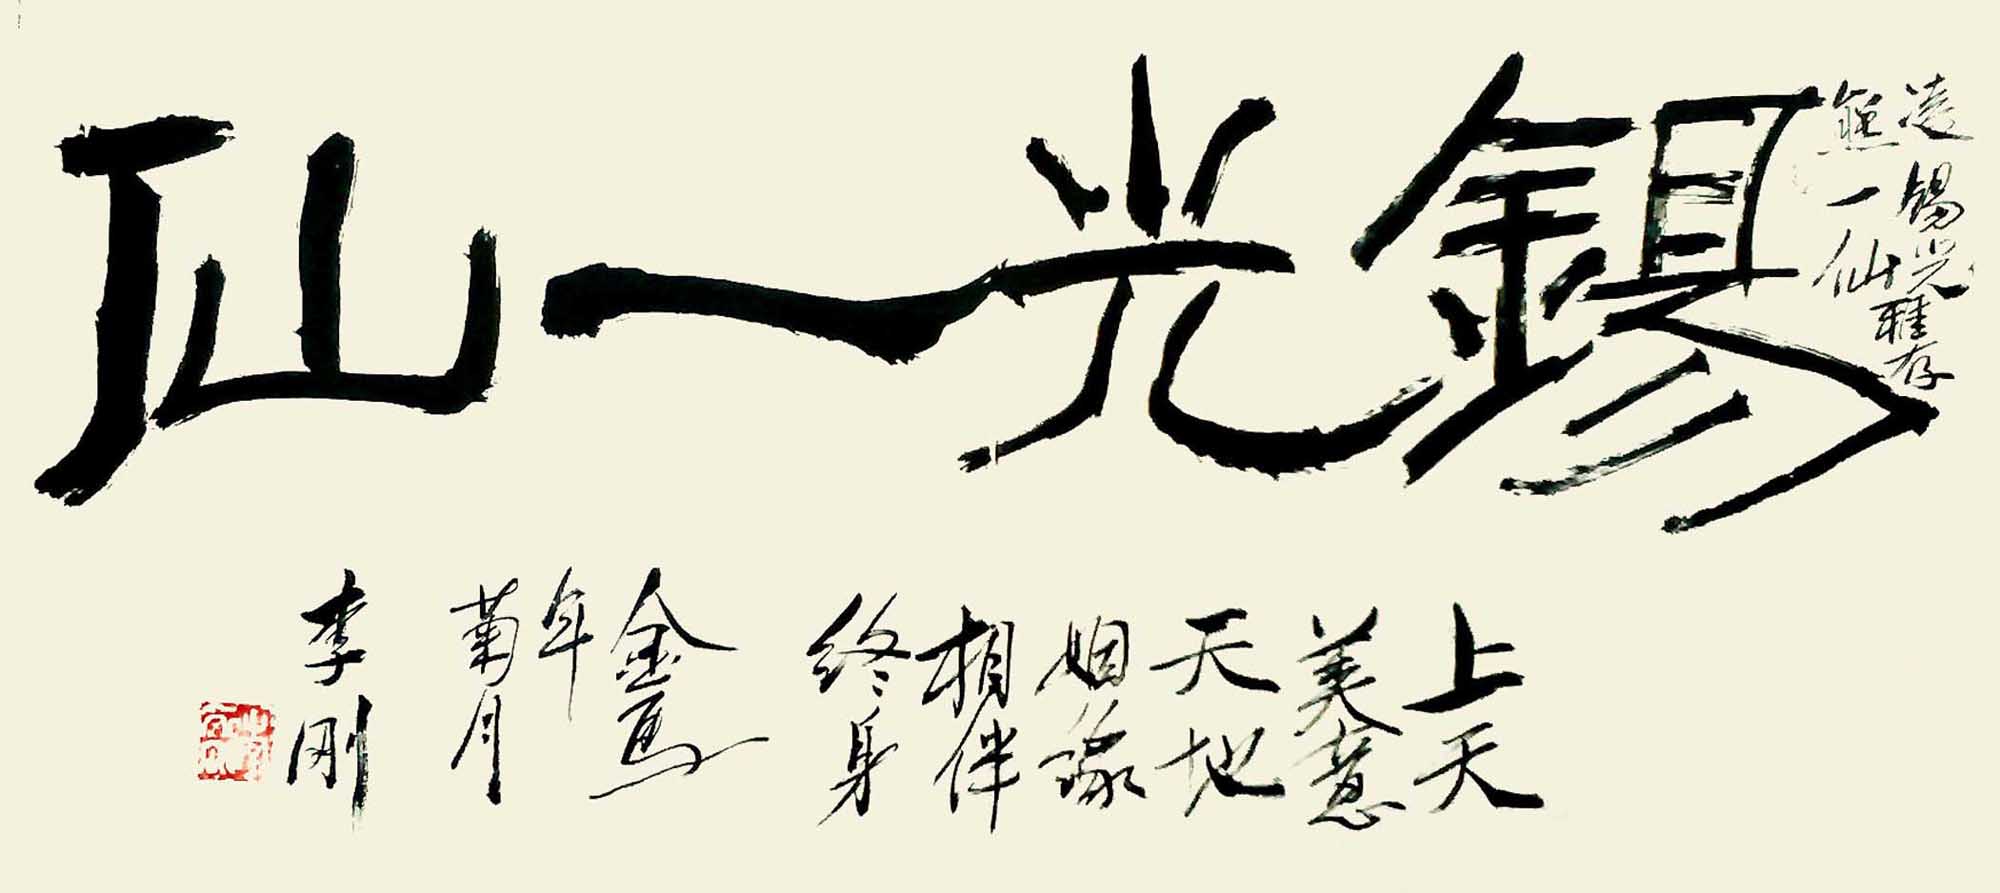 凌锡光
熊一仙
雅存
錫光一仙
上天
美意
天地
姻缘
相伴
终身
金馬
年
菊月
李刚